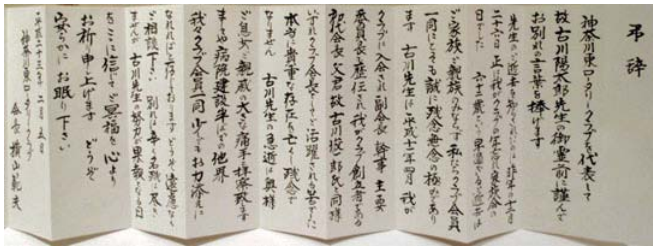 弔辞
神奈川東ロータリークラブを代表して
故古川陽太郎先生の御霊前に謹んで
お別れの言葉を捧げます
先生のご逝去を知らされたのは昨年の十二月
二十六日 正に我がクラブの年忘れ家族会の
日でした 六十三歳という早過ぎるご逝去は
ご家族ご親族のみならず 私たちクラブ会員
一同にとっても誠に残念無念の極みであり
ます 古川先生は平成十二年四月 我が
クラブに入会され 副会長 幹事 主要
委員長を歴任され 我がクラブ創立者である
初代会長 父君 故古川 郎氏と同様
いずれクラブ会長としてご活躍される筈でした
本当に貴重な存在を亡くし残念で
なりません 古川先生の急逝は奥様
ご息女ご親戚の大きな痛手と拝察致します
まして病院建設半ばでの他界
我々クラブ会員一同 少しでもお力添えに
なれればと一存じております どうぞご遠慮なく
ご相談下さい お別れの辛さは名残りは尽き
ませんが 古川先生の努力が果実となる日
をここに信じて ご冥福を心より
お祈り申し上げます どうぞ
安らかに お眠り下さい
平成二十三年 二月 五日
神奈川東ロータリークラブ
会長 横山範夫